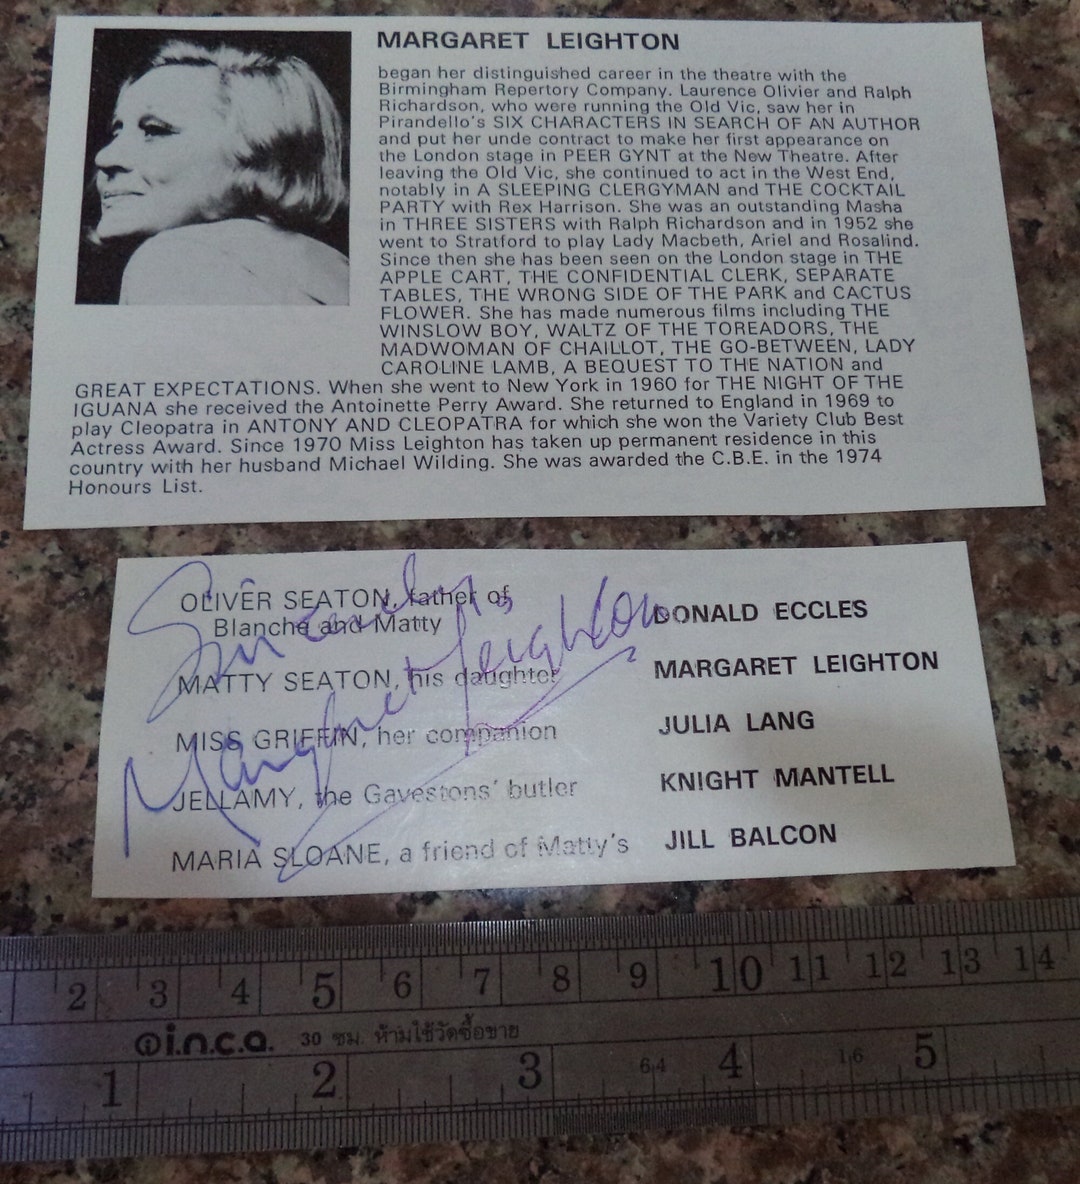 MARGARET LEIGHTON
began her distinguished career in the theatre with the
Birmingham Repertory Company. Laurence Olivier and Ralph
Richardson, who were running the Old Vic, saw her in
Pirandello's SIX CHARACTERS IN SEARCH OF AN AUTHOR
and put her unde contract to make her first appearance on
the London stage in PEER GYNT at the New Theatre. After
leaving the Old Vic, she continued to act in the West End,
notably in A SLEEPING CLERGYMAN and THE COCKTAIL
PARTY with Rex Harrison. She was an outstanding Masha
in THREE SISTERS with Ralph Richardson and in 1952 she
went to Stratford to play Lady Macbeth, Ariel and Rosalind.
Since then she has been seen on the London stage in THE
APPLE CART, THE CONFIDENTIAL CLERK, SEPARATE
TABLES, THE WRONG SIDE OF THE PARK and CACTUS
FLOWER. She has made numerous films including THE
WINSLOW BOY, WALTZ OF THE TOREADORS, THE
MADWOMAN OF CHAILLOT, THE GO-BETWEEN, LADY
CAROLINE LAMB, A BEQUEST TO THE NATION and
GREAT EXPECTATIONS. When she went to New York in 1960 for THE NIGHT OF THE
IGUANA she received the Antoinette Perry Award. She returned to England in 1969 to
play Cleopatra in ANTONY AND CLEOPATRA for which she won the Variety Club Best
Actress Award. Since 1970 Miss Leighton has taken up permanent residence in this
country with her husband Michael Wilding. She was awarded the C.B.E. in the 1974
Honours List.
OLIVER SEATON, father of
Blanche and Matty DONALD ECCLES
MATTY SEATON, his daughter MARGARET LEIGHTON
MISS GRIFFIN, her companion JULIA LANG
JELLAMY, the Gavestons' butler KNIGHT MANTELL
MARIA SLOANE, a friend of Matty's JILL BALCON
Sincerely
Margaret Leighton
2 3 4 5 6 7 8 9 10 11 12 13 14
i.n.c.a. 30 ซม. ห้ามใช้วัดซื้อขาย
1 2 3 64 4 16 5